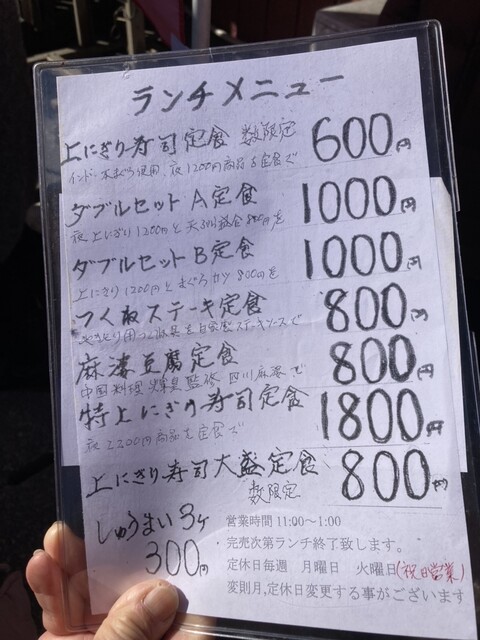 ランチメニュー
上にぎり寿司定食 数限定 600円
インド本まぐろ使用、夜1200円商品を定食で
ダブルセットA定食 1000円
夜上にぎり1200円と天ぷら盛合800円を
ダブルセットB定食 1000円
上にぎり1200円とまぐろカツ800円を
つくねステーキ定食 800円
やきとり用つくね具を自家製ステーキソースで
麻婆豆腐定食 800円
中国料理 監修 四川麻婆で
特上にぎり寿司定食 1800円
夜2200円商品を定食で
上にぎり寿司大盛定食 800円
数限定
しゅうまい3ヶ
300円
営業時間 11:00~1:00
完売次第ランチ終了致します。
定休日毎週 月曜日 火曜日(祝日営業)
変則月,定休日変更する事がございます